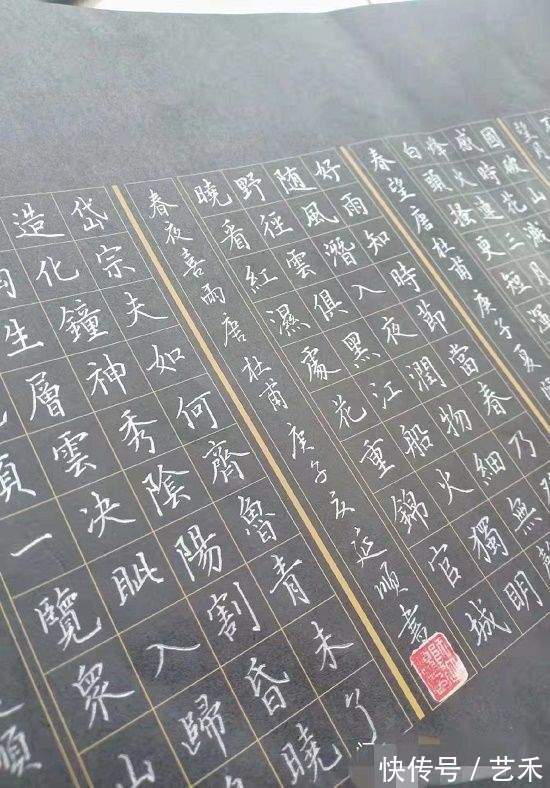 望月
國破山
感時花濺
烽火連三月
白頭搔更短渾
春望唐杜甫庚子夏
好雨知時節當春乃
隨風潛入夜潤物細無
野徑雲俱黑江船火獨明
曉看紅濕處花重錦官城
春夜喜雨唐杜甫庚子夏延順書
岱宗夫如何齊魯青未了
造化鐘神秀陰陽割昏曉
生層雲决眦入歸
頂一覽眾山
順
快传号/艺禾